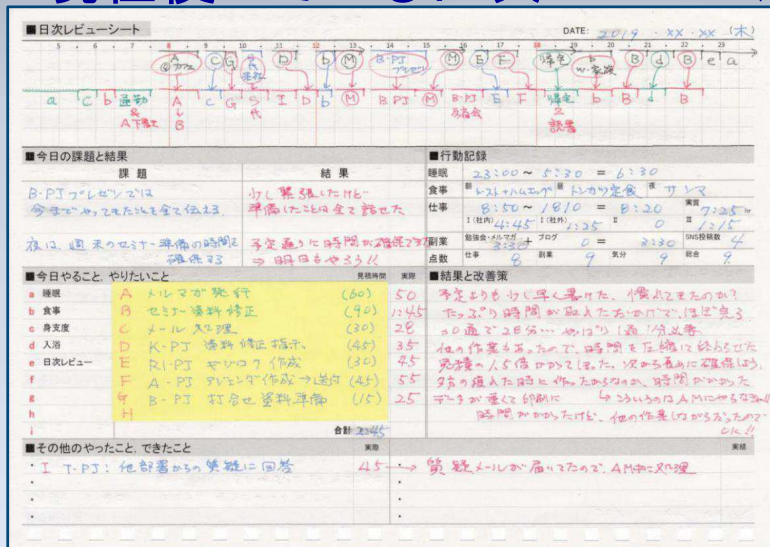 ■日次レビューシート
DATE: 2019 ・xx・xx (木)
5 6 7 8 9 10 11 12 13 14 15 16 17 18 19 20 21 22 23
A @カフェ C G D b M B-PJ プレゼン M E F 帰宅 b w.家族 B d B e a
a C b 通勤 & A下書き A↓B C G I D b M B PJ M B-PJ E F 帰宅 & 読書 b B d B
■今日の課題と結果
課題 結果
B-PJプレゼンでは 少し緊張したけど
今までやってきたことを全て伝える、 準備したことは全て話せた
夜は、週末のセミナー準備の時間を 予定通りに時間が確保できた
確保する ⇒ 明日もやろう!!
■行動記録
睡眠 23:00 ~ 5:30 = 6:30
食事 朝 トースト+ハムエッグ 昼 トンカツ定食 夜 サンマ
仕事 8:50 ~ 1810 = 8:20 実質 7:25
I(社内) 4:45 I(社外) 1:25 II 0 III 1:15
副業 勉強会・メルマガ 3:30 + ブログ 0 = 3:30 SNS投稿数 4
点数 仕事 8 副業 9 気分 9 総合 9
■今日やること、やりたいこと 見積時間 実際
a 睡眠 A メルマガ発行 (60) 50
b 食事 B セミナー資料修正 (90) 1:45
c 身支度 C メール処理 (30) 28
d 入浴 D K-PJ 資料修正指示、 (45) 35
e 日次レビュー E R1-PJ ギジロク作成 (30) 45
f F A-PJ アジェンダ作成→送付 (45) 55
g G B-PJ 打合せ資料準備 (15) 25
h H
i 合計
■結果と改善策
予定よりも少し早く書けた、慣れてきたのか?
たっぷり時間が取れたおかげで、ほぼ完了
30通で28分… やっぱり1通1分必要
他の作業もあったので、時間を圧縮して終わらせた
見積の1.5倍かかってしまった。次から長めに確保しよう、
夕方の疲れた時に作ったからなのか、時間がかかった
データが重くて印刷に ↳こういうのはAMにやるべき!!
時間がかかったけど、他の作業しながらだったので
OK!!
■その他のやったこと、できたこと 実際 実績
・I T-PJ: 他部署からの質疑に回答 45 → 質疑メールが届いてたので、AM中に処理